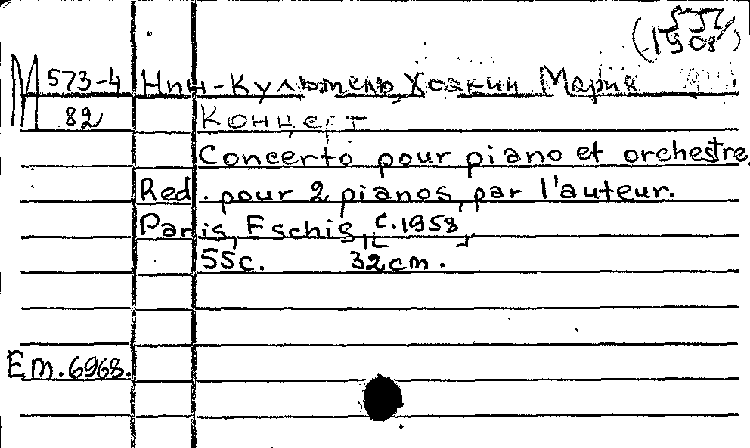 (1908)
М 573-4 Нин-Кульмель, Хоакин Мария
82 Концерт
Concerto pour piano et orchestre.
Red. pour 2 pianos, par l'auteur.
Paris, Eschis, [c. 1958]
55с. 32cm.
Em. 6968.